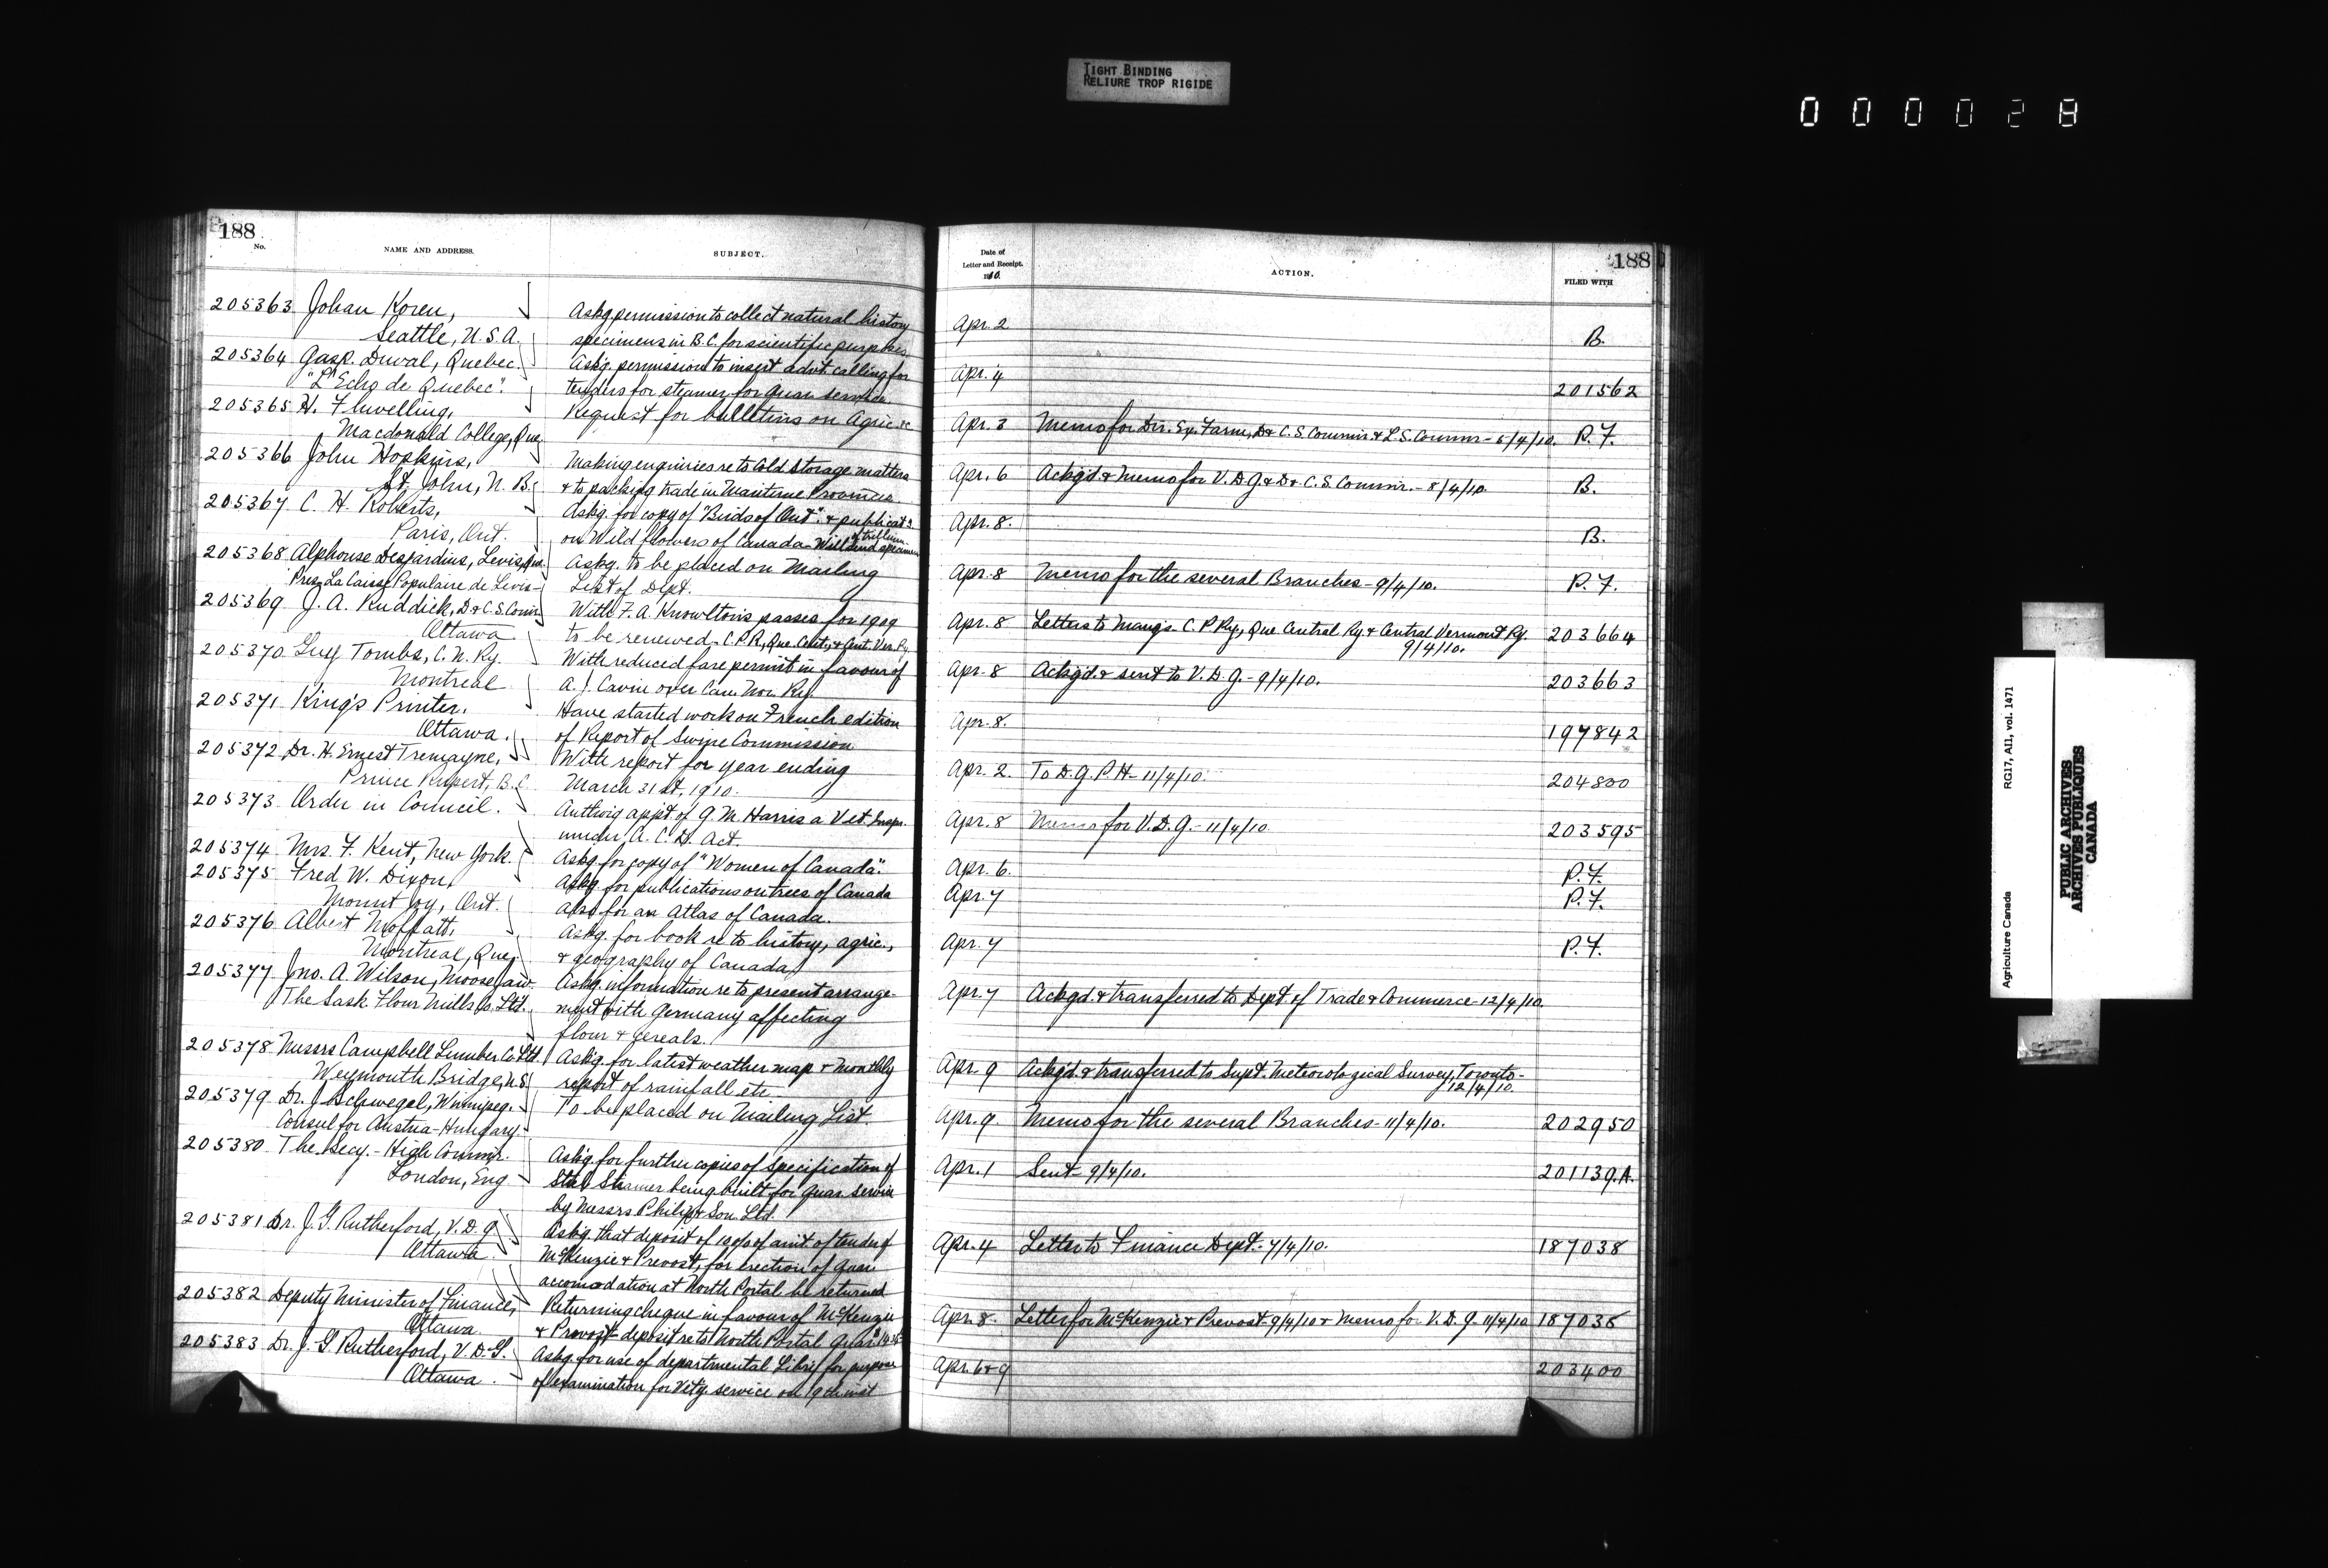 TIGHT BINDING
RELIURE TROP RIGIDE
000028
188
No.
NAME AND ADDRESS.
SUBJECT.
205363 Johan Koren,
Seattle, U.S.A.
Askg. permission to collect natural history
specimens in B.C. for scientific purposes
205364 Gasp. Duval, Quebec.
"L'Echo de Quebec".
Askg. permission to insert advt. calling for
tenders for steamer for quar. service
205365 H. Flwelling,
Macdonald College, Que.
Request for bulletins on Agric. &c
205366 John Hopkins,
St. John, N. B.
Making enquiries re to Cold Storage matters
& to packing trade in Maritime Provinces
205367 C. H. Roberts,
Paris, Ont.
Askg. for copy of "Birds of Ont". & publicat.
on Wild flowers of Canada - Will send specimen
of trillium
205368 Alphonse Desjardins, Levis, Que.
Pres. La Caisse Populaire de Levis
Askg. to be placed on Mailing
List of Dept.
205369 J. A. Ruddick, D & C. S. Comr.
Ottawa
With F. A. Knowlton's passes for 1909
to be renewed. C.P.R., Que. Cent., & Cent. Ver. Ry.
205370 Guy Tombs, C. N. Ry.
Montreal
With reduced fare permit in favour of
A. J. Cavin over Can. Nor. Ry.
205371 King's Printer,
Ottawa.
Have started work on French edition
of Report of Swine Commission
205372 Dr. H. Ernest Tremayne,
Prince Rupert, B.C.
With report for year ending
March 31st, 1910.
205373 Order in Council.
Authorig appt. of G. M. Harris a Vet. Inspr.
under A. C. D. Act.
205374 Mrs. F. Kent, New York.
Askg. for copy of "Women of Canada".
205375 Fred W. Dixon,
Mount Joy, Ont.
Askg. for publications on trees of Canada
also for an Atlas of Canada.
205376 Albert Moffatt,
Montreal, Que.
Askg. for book re to history, agric.,
& geography of Canada
205377 Jno. A. Wilson, Moosejaw.
The Sask. Flour Mills Co. Ltd.
Askg. information re to present arrange-
ment with Germany affecting
flour & cereals.
205378 Messrs Campbell Lumber Co. Ltd.
Weymouth Bridge, N.S.
Askg. for latest weather map & monthly
report of rainfall etc.
205379 Dr. J. Schwegel, Winnipeg.
Consul for Austria-Hungary.
To be placed on Mailing List.
205380 The Secy. - High Commr.
London, Eng
Askg. for further copies of specification of
Steel Steamer being built for quar. service
by Messrs Philip & Son Ltd.
205381 Dr. J. G. Rutherford, V. D. G.
Ottawa.
Askg. that deposit of 10% of amt. of tender of
McKenzie & Prevost, for erection of quar.
accomodation at North Portal be returned
205382 Deputy Minister of Finance,
Ottawa.
Returning cheque in favour of McKenzie
& Prevost deposit re to North Portal quar.
205383 Dr. J. G. Rutherford, V. D. G.
Ottawa.
Askg. for use of departmental Liby for purpose
of examination for Vety. service on 19th inst
188
Date of
Letter and Receipt.
1910.
ACTION.
FILED WITH
Apr. 2 B.
Apr. 4 201562
Apr. 3 Memo for Dir. Ex. Farm, D & C. S. Commr. & L. S. Commr - 5/4/10. P. F.
Apr. 6 Ackgd. & Memo for V. D. G. & D & C. S. Commr. - 8/4/10. B.
Apr. 8. B.
Apr. 8 Memo for the several Branches - 9/4/10. P. F.
Apr. 8 Letters to Mangs. C. P. Ry., Que Central Ry. & Central Vermont Ry.
9/4/10. 203664
Apr. 8 Ackgd. & sent to V. D. G. - 9/4/10. 203663
Apr. 8. 197842
Apr. 2. To D. G. P. H. - 11/4/10. 204800
Apr. 8 Memo for V. D. G. - 11/4/10. 203595
Apr. 6. P. F.
Apr. 7 P. F.
Apr. 7 P. F.
Apr. 7 Ackgd. & transferred to Dept. of Trade & Commerce - 12/4/10.
Apr. 9 Ackgd. & transferred to Supt. Meteorological Survey, Toronto -
12/4/10.
Apr. 9. Memo for the several Branches - 11/4/10. 202950
Apr. 1 Sent - 9/4/10. 201139.A.
Apr. 4 Letter to Finance Dept. - 7/4/10. 187038
Apr. 8. Letter for McKenzie & Prevost - 9/4/10 & Memo for V. D. G. 11/4/10 187038
Apr. 6 & 9 203400
Agriculture Canada
RG17, AII, vol. 1471
PUBLIC ARCHIVES
ARCHIVES PUBLIQUES
CANADA